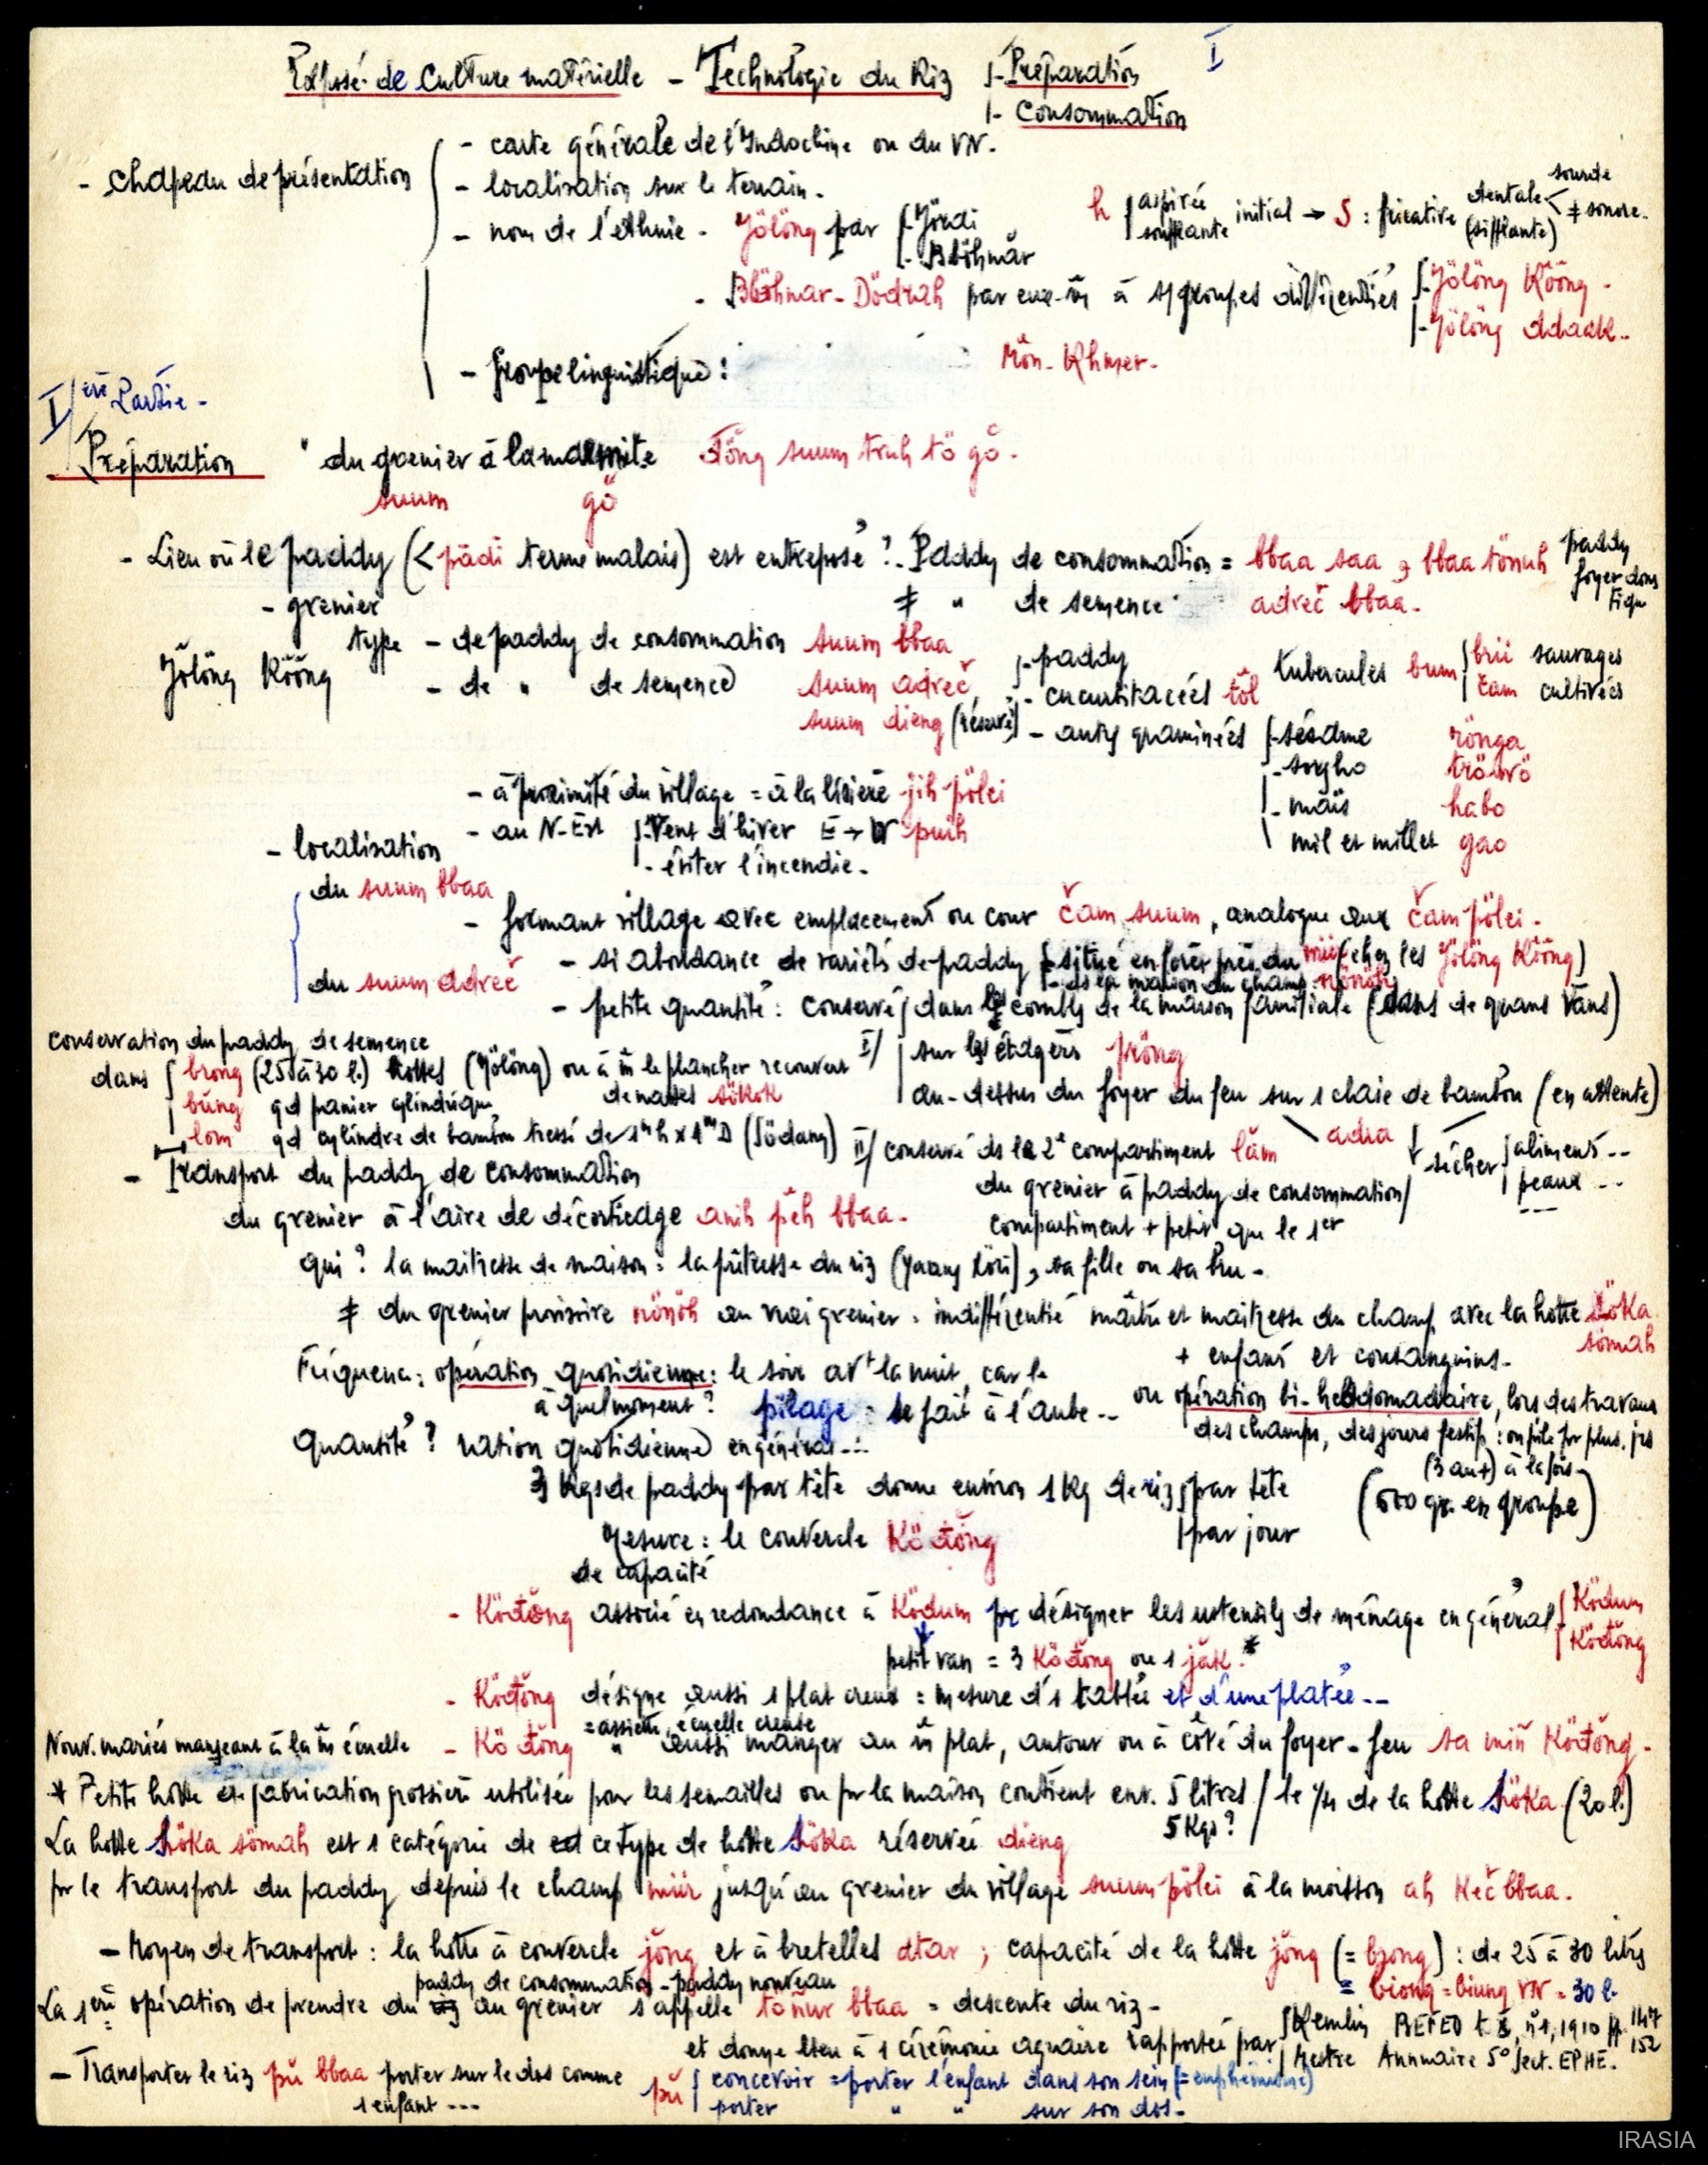 I
Exposé de Culture matérielle - Technologie du Riz - Préparation
- Consommation
- chapeau de présentation
- carte générale de l'Indochine ou du VN.
- localisation sur le terrain.
- nom de l'éthnie - Jölöng par - Jördi
- Bböhnar
h aspirée soufflante initial → S : fricative dentale (sifflante) < sourde ≠ sonore.
- Bböhnar - Dödrah par eux-m̂ à sgroupes différenciés - Jölöng Kŏŏng -
- Jölöng ddaak -
- Groupe linguistique : Môn - Khmer -
I/ ère Partie -
Préparation " du grenier à la marmite đŏng suum truh tö gŏ -
suum gŏ
- Lieu où le paddy (< pādi terme malais) est entreposé ? - Paddy de consommation = bbaa saa , bbaa tönuh paddy foyer domestique
- grenier ≠ " de semence adreč bbaa -
type - de paddy de consommation suum bbaa
Jölöng Kŏŏng - de " de semence suum adreč
suum dieng (réservé)
- paddy
- cucurbitacées tŏl
tubercules bum brii sauvages
čam cultivées
- autres graminées - sésame rönga
- sorgho
- maïs habo
mil et millet gao
- à proximité du village = à la lisière jih pölei
- au N-Est - Vent d'hiver E → W puih
- éviter l'incendie -
- localisation
du suum bbaa
- formant village avec emplacement ou cour čam suum, analogue aux čam pölei -
du suum adreč
- si abondance de variétés de paddy - situé en forêt près du miir (chez les Jölöng Kŏŏng)
- ds la maison du champ nönöh
- petite quantité : conservé dans les combles de la maison familiale (dans de grands vans)
conservation du paddy de semence
dans brong (25 à 30 l.) hottes (Jölöng) ou à m̂ le plancher recouvert
bŭng gd panier cylindrique de nattes sökok
lom gd cylindre de bambou tressé de 1m h x 1m D (Södang)
I/ sur les étagères pröng
au-dessus du foyer du feu sur 1 claie de bambou (en attente)
adra ↓ sécher aliments --
peaux --
II/ conservé ds le 2e compartiment lăm
du grenier à paddy de consommation/
compartiment + petit que le 1er
- Transport du paddy de consommation
du grenier à l'aire de décorticage anih pĕh bbaa -
qui ? la maîtresse de maison : la prêtresse du riz (yaang Xöri), sa fille ou sa bru -
≠ du grenier provisoire nönöh au vrai grenier : indifférentié maître et maîtresse du champ avec la hotte söka sömah
+ enfants et consanguins -
Fréquence : opération quotidienne : le soir avt la nuit, car le
à quel moment ? pilage : se fait à l'aube --
ou opération bi-hebdomadaire, lors des travaux
des champs, des jours festifs : on pile pr plus. jrs
(3 au +) à la fois -
Quantité ? ration quotidienne en général --
3 Kgs de paddy par tête donne environ 1 Kg de riz par tête
par jour
(500 gr. en groupe)
Mesure : le couvercle Ködŏng
de capacité
- Ködŏng associé en redondance à Ködum pr désigner les ustensiles de ménage en général Ködum
Ködŏng
petit van = 3 Ködŏng ou 1 jăk *
- Ködŏng désigne aussi 1 plat creux : mesure d'1 tablée et d'une platée --
= assiette, écuelle creuse
Nouv. mariés mangeant à la m̂ écuelle - Ködŏng " aussi manger au m̂ plat, autour ou à côté du foyer-feu sa miñ Ködŏng -
* Petite hotte de fabrication grossière utilisée pour les semailles ou pr la maison contient env. 5 litres / le 1/4 de la hotte söka (20 l.)
5 Kgs ?
La hotte söka sömah est 1 catégorie de ce type de hotte söka réservée dieng
pr le transport du paddy depuis le champ miir jusqu'au grenier du village suum pölei à la moisson ah Keč bbaa -
- Moyen de transport : la hotte à couvercle jŏng et à bretelles atar ; capacité de la hotte jŏng (= bjong) : de 25 à 30 litres
= biong = biung VN = 30 l.
paddy de consommation - paddy nouveau
La 1ère opération de prendre du au grenier s'appelle töñur bbaa = descente du riz -
et donne lieu à 1 cérémonie agraire rapportée par Kemlin BEFEO t. X, n°1, 1910 pp. 147 152
Mestre Annuaire 5° Sect. EPHE.
- Transporter le riz pŭ bbaa porter sur le dos comme
1 enfant ---
pŭ concevoir = porter l'enfant dans son sein (= euphémisme)
porter " " sur son dos -
IRASIA